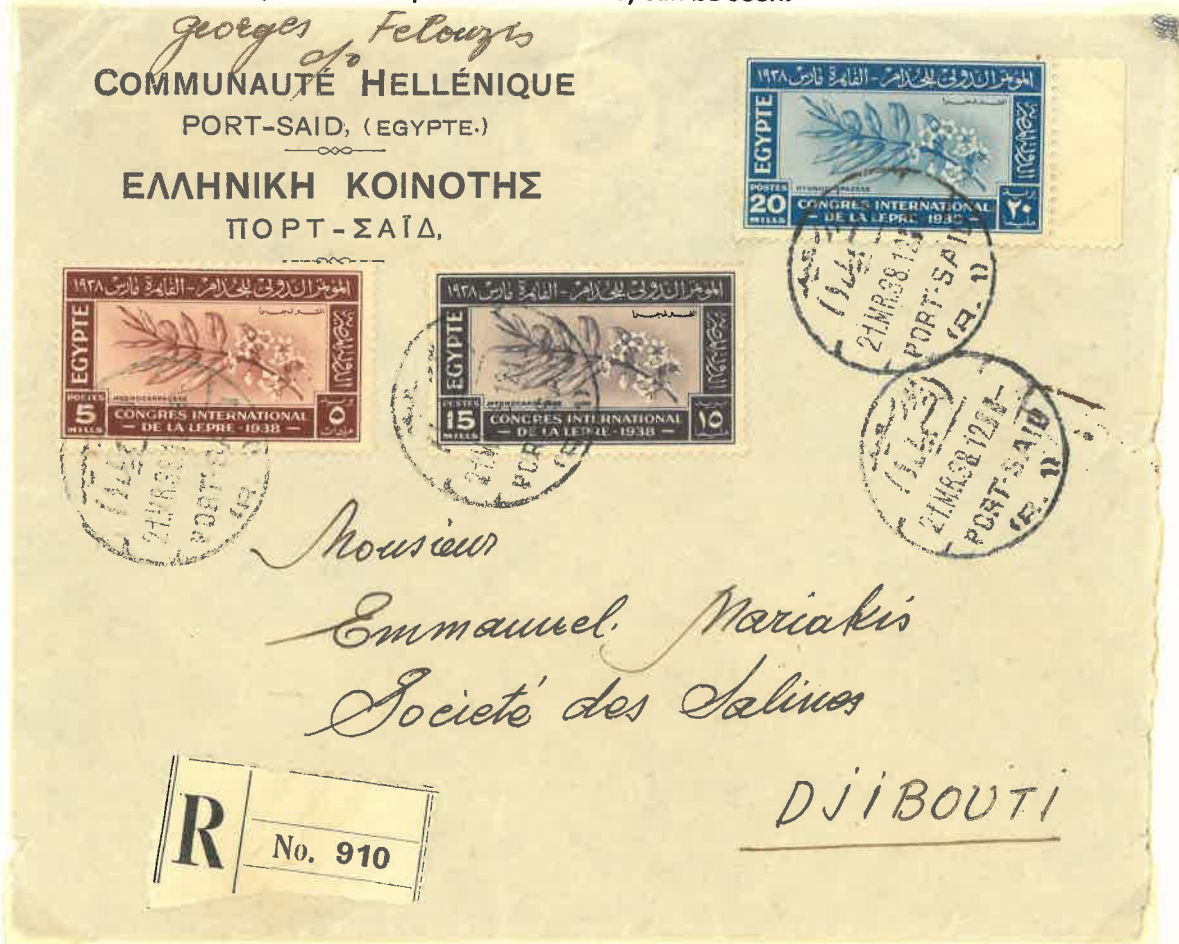 georges Felouzis
c/o
COMMUNAUTÉ HELLÉNIQUE
PORT-SAID, (EGYPTE.)
ΕΛΛΗΝΙΚΗ ΚΟΙΝΟΤΗΣ
ΠΟΡΤ-ΣΑΪΔ,
المؤتمر الدولى للجذام - القاهرة مارس ١٩٣٨
EGYPTE
POSTES
20
MILLS
HYDNOCARPACEAE
CONGRES INTERNATIONAL
DE LA LEPRE · 1938
٢٠
21.MR.38.12
PORT-SAID
(R.1)
المؤتمر الدولى للجذام - القاهرة مارس ١٩٣٨
EGYPTE
POSTES
5
MILLS
CONGRES INTERNATIONAL
— DE LA LEPRE · 1938 —
٥
مليمات
21.MR.38
PORT
المؤتمر الدولى للجذام - القاهرة مارس ١٩٣٨
EGYPTE
POSTES
15
MILLS
CONGRES INTERNATIONAL
— DE LA LEPRE · 1938 —
١٥
PORT
21.MR.38.12
PORT-SAID
Monsieur
Emmanuel. Mariakis
Societé des Salines
DJIBOUTI
R
No. 910